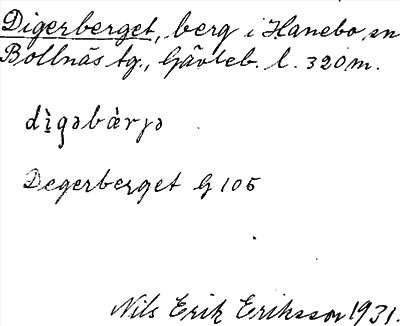 Digerberget, berg i Hanebo sn
Bollnäs tg., Gävleb. l. 320 m.
dı̀gəbàrjə
Degerberget G 105
Nils Erik Eriksson 1931.